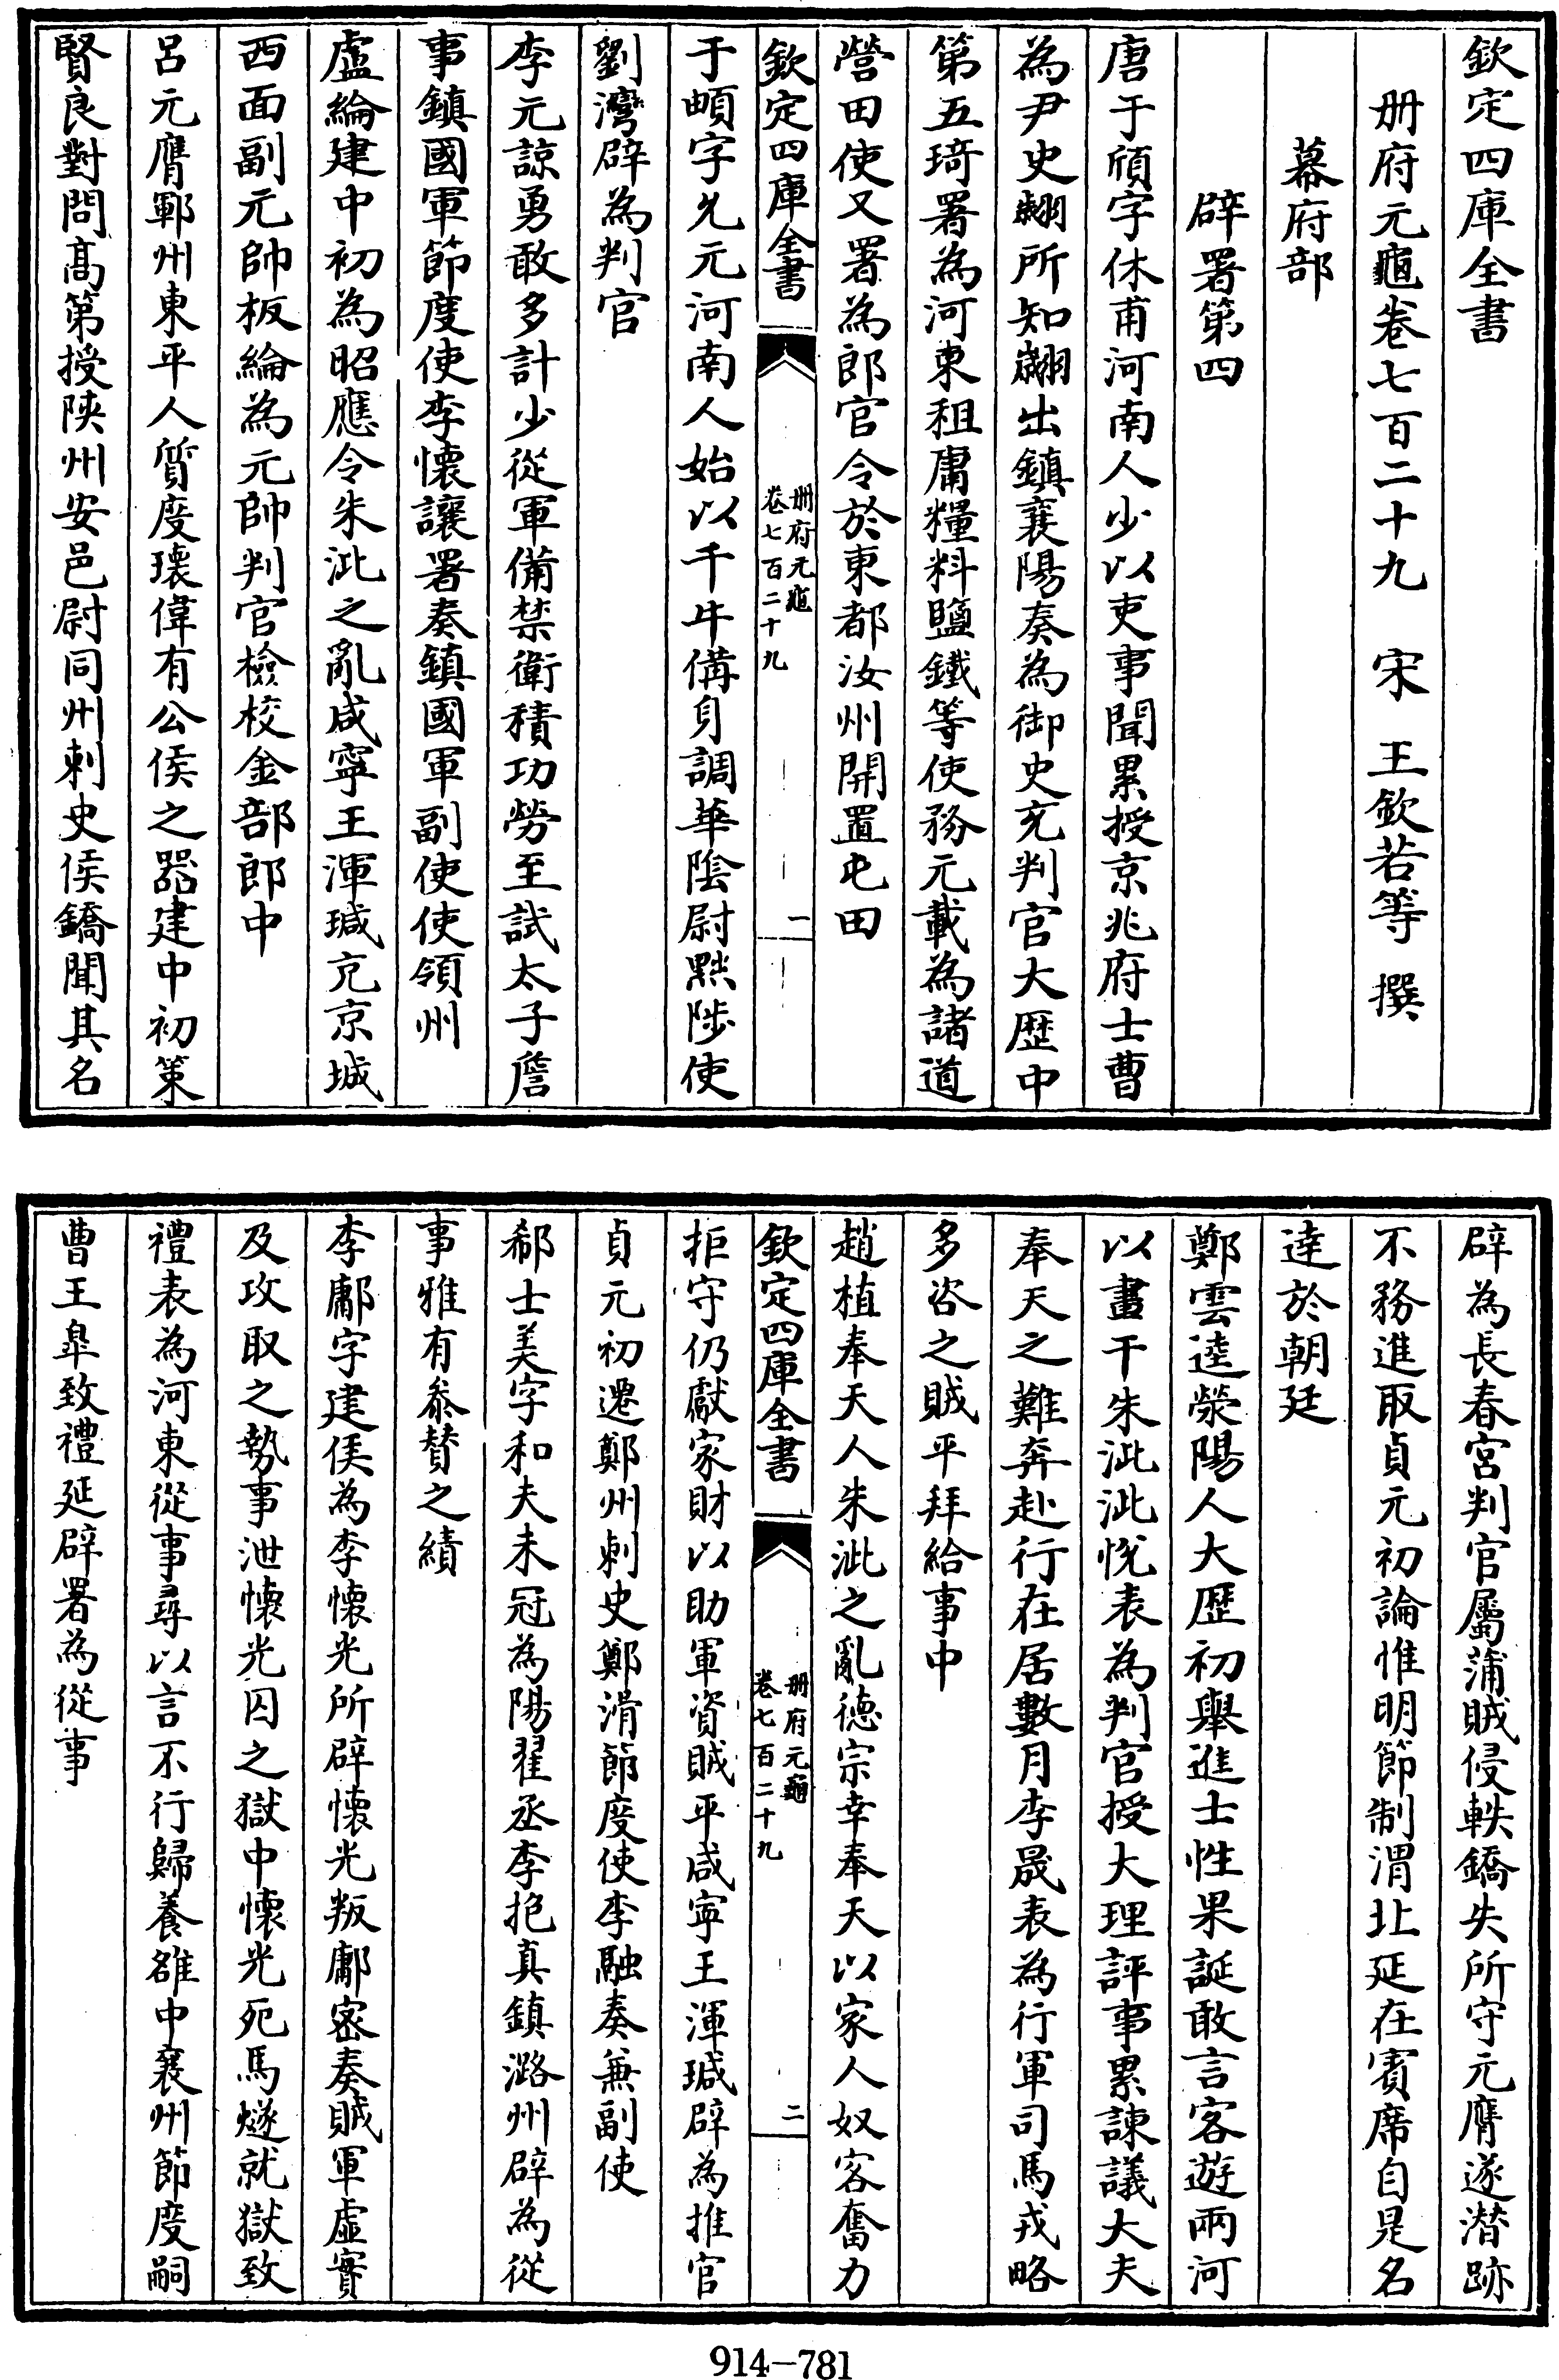 欽定四庫全書
册府元龜卷七百二十九　宋　王欽若等　撰
幕府部
辟署第四
唐于頎字休甫河南人少以吏事聞累授京兆府士曹
為尹史翽所知翽出鎮襄陽奏為御史充判官大歷中
第五琦署為河東租庸糧料鹽鐵等使務元載為諸道
營田使又署為郎官令於東都汝州開置屯田
欽定四庫全書
册府元龜
卷七百二十九
一
于頔字允元河南人始以千牛備身調華陰尉黜陟使
劉灣辟為判官
李元諒勇敢多計少從軍備禁衛積功勞至試太子詹
事鎮國軍節度使李懷讓署奏鎮國軍副使使領州
盧綸建中初為昭應令朱泚之亂咸寧王渾瑊充京城
西面副元帥板綸為元帥判官檢校金部郎中
呂元膺鄆州東平人質度瓌偉有公侯之器建中初策
賢良對問高第授陜州安邑尉同州刺史侯鐈聞其名
辟為長春宮判官屬蒲賊侵軼鐈失所守元膺遂潜跡
不務進取貞元初論惟明節制渭北延在賓席自是名
達於朝廷
鄭雲逵滎陽人大歷初舉進士性果誕敢言客遊兩河
以畫干朱泚泚悅表為判官授大理評事累諫議大夫
奉天之難奔赴行在居數月李晟表為行軍司馬戎略
多咨之賊平拜給事中
趙植奉天人朱泚之亂德宗幸奉天以家人奴客奮力
欽定四庫全書
册府元龜
卷七百二十九
二
拒守仍獻家財以助軍資賊平咸寧王渾瑊辟為推官
貞元初遷鄭州刺史鄭滑節度使李融奏兼副使
郗士美字和夫未冠為陽翟丞李抱真鎮潞州辟為從
事雅有叅賛之績
李鄘字建侯為李懷光所辟懷光叛鄘密奏賊軍虛實
及攻取之勢事泄懷光囚之獄中懷光死馬燧就獄致
禮表為河東從事尋以言不行歸養雒中襄州節度嗣
曹王臯致禮延辟署為從事
914-781